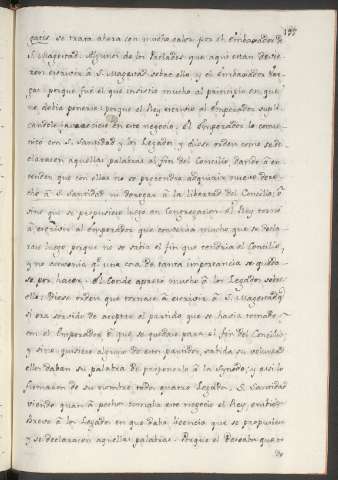 197
gares se trata ahora con mucho calor por el embaxador de
S. Magestad. Algunos de los Prelados que aqui estan devie-
ron escrivir à S. Magestad sobre ello y el embaxador Var-
gas: porque fué el que insistio mucho al principio en que
no debia ponerse: porque el Rey escrivio al emperador supli-
candole favoreciese en este negocio. El emperador lo comu-
nico con S. Santidad y los Legados y diose orden como se de-
clarasen aquellas palabras al fin del Concilio dando à en-
tender que con ellas no se pretendia adquirir nuevo dere-
cho à S. Santidad ni derogar à la libertad del Concilio: ò
sino que se propusiese luego en Congregacion. El Rey torno
à escrivir al emperador que convenia mucho que se decla-
rase luego porque no se sabia el fin que tendria el Concilio,
y no convenia q.e una cosa de tanta importancia se queda-
se por hacer. El Conde apreto mucho à los Legados sobre
ello: Diose orden que tornase à escrivir à S. Magestad q.e
si era servido de aceptar el partido que se havia tomado
con el Emperador ò que se quedase para el fin del Concilio
y sino quisiese alguno de estos partidos, sabida su voluntad
ellos daban su palabra de proponerlo à la Synodo; y asi lo
firmaron de su nombre todos quatro Legados. S. Santidad
viendo quan à pechos tomaba este negocio el Rey, embio
Breve à los Legados en que daba licencia que se propusiese
y se declarasen aquellas palabras. Porque el Deseaba que to-
do